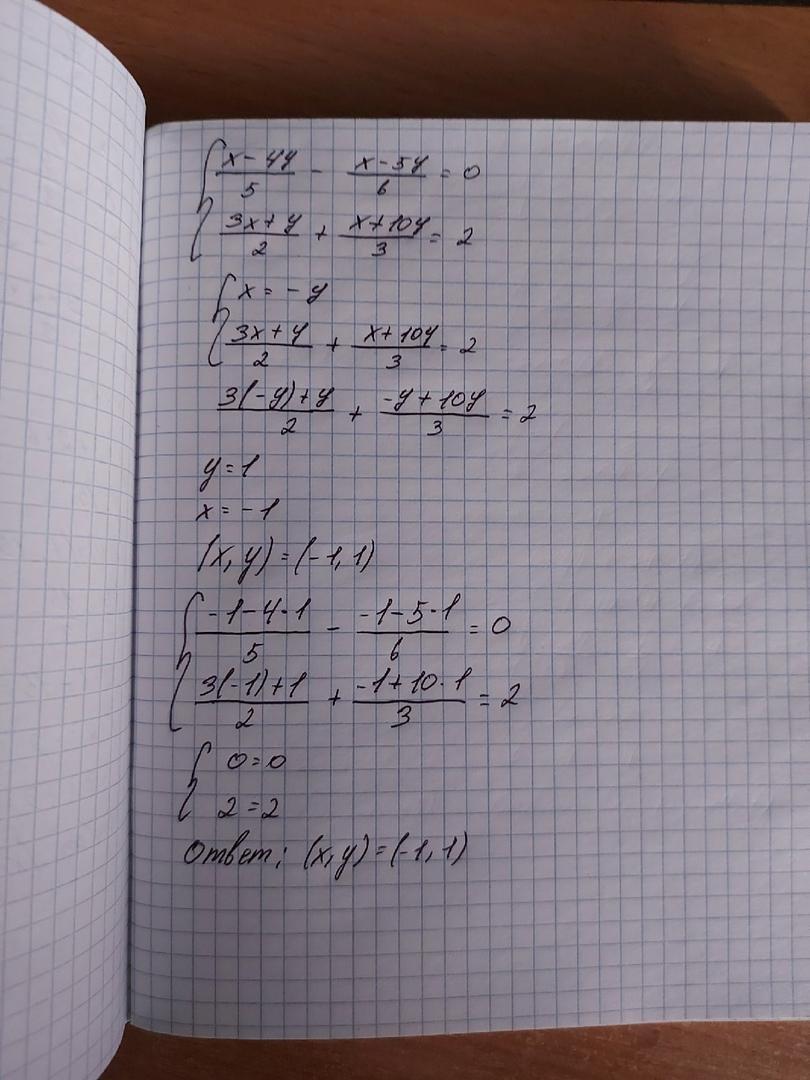 { (x-4y)/5 - (x-5y)/6 = 0
(3x+y)/2 + (x+10y)/3 = 2
{ x = -y
(3x+y)/2 + (x+10y)/3 = 2
(3(-y)+y)/2 + (-y+10y)/3 = 2
y=1
x=-1
(x,y)=(-1,1)
{ (-1-4·1)/5 - (-1-5·1)/6 = 0
(3(-1)+1)/2 + (-1+10·1)/3 = 2
{ 0=0
2=2
Ответ; (x,y)=(-1,1)